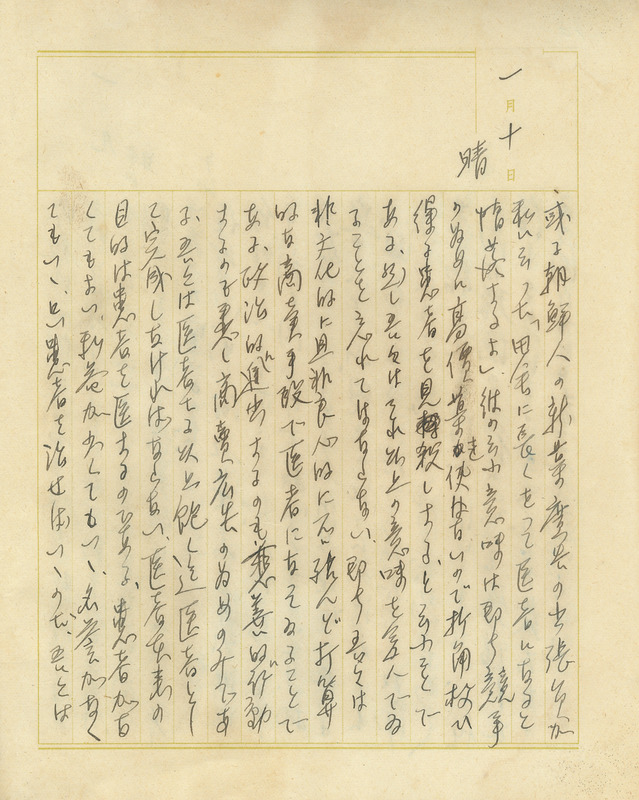 一月十日
晴
或る朝鮮人の新薬廣告の出張員が
私に云った「田舎に長くをって医者になると
惰落するよ」彼の云ふ意味は即ち競争
のために高價薬を使はないので折角救ひ
得る患者を見殺しするとと云ふことで
ある、然し吾々はそれ以上の意味を含んでゐ
ることを忘れてはならない、即ち吾々は
非文化的に且非良心的に否殆んど打算
的な商業手段で医者になってゐることで
ある、政治的に進出するのも慈善的行動
するのも悉く商賣広告のためのみであ
る、吾々は医者たる以上飽く迄医者とし
て完成しなければならない、医者本来の
目的は患者を医するのである、患者がな
くてもよい、利益が少くてもいゝ、名誉がなく
てもいゝ、只患者を治せばいゝのだ、吾々は